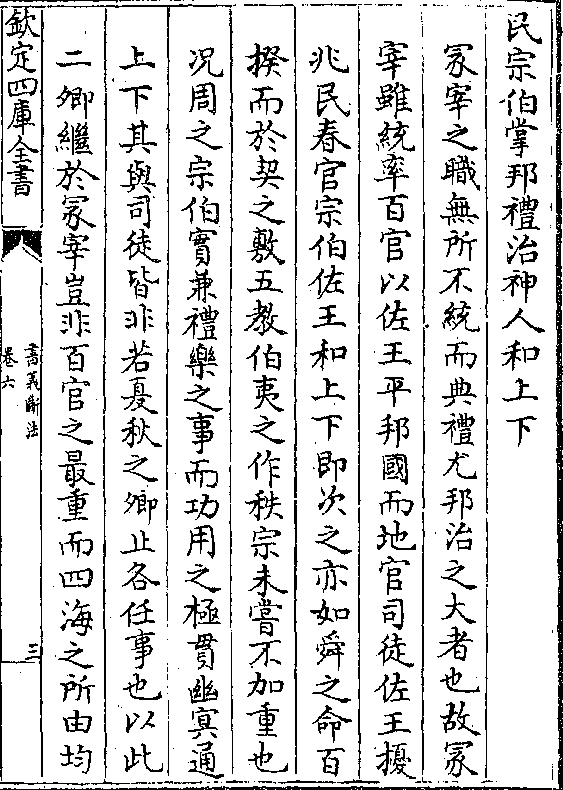 民宗伯掌邦禮治神人和上下
冢宰之職無所不統而典禮尤邦治之大者也故冢
宰雖統率百官以佐王平邦國而地官司徒佐王擾
兆民春官宗伯佐王和上下即次之亦如舜之命百
揆而於契之敷五教伯夷之作秩宗未嘗不加重也
况周之宗伯實兼禮樂之事而功用之極貫幽冥通
上下其與司徒皆非若夏秋之卿止各任事也以此
二卿繼於冢宰豈非百官之最重而四海之所由均
欽定四庫全書
書義斷法
卷六
三